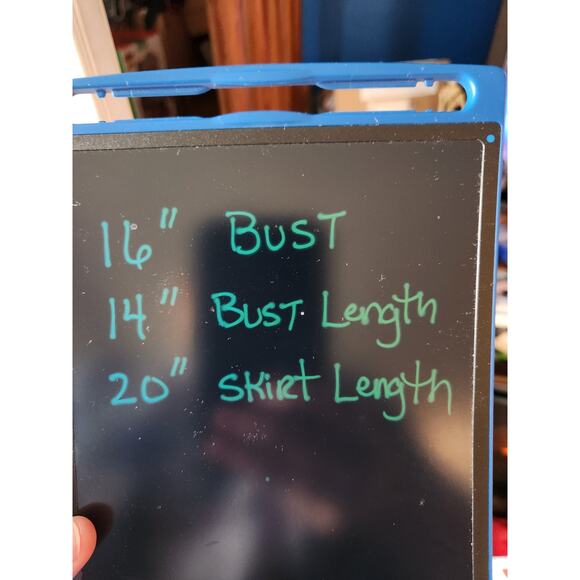 16" BUST
14" BUST Length
20" SKIRT Length